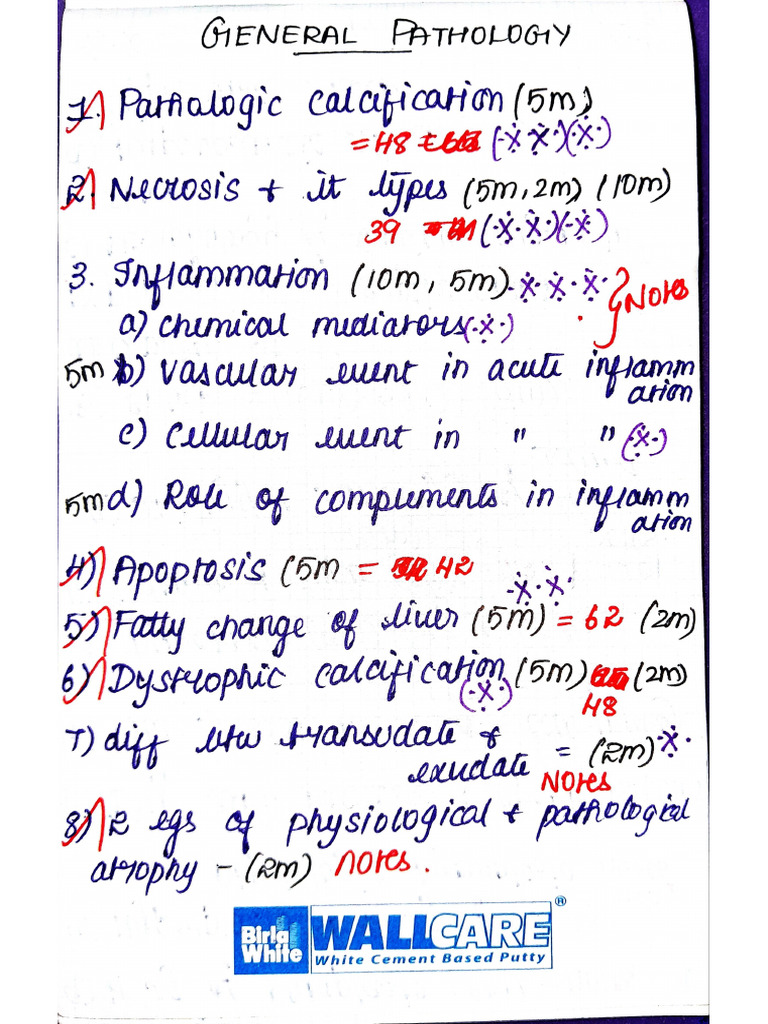 GENERAL PATHOLOGY
1.) Pathologic calcification (5m)
= 48
2.) Necrosis & it types (5m, 2m) (10m)
39
3. Inflammation (10m, 5m)
Notes
a) chemical mediators
5m b) vascular event in acute inflamm
ation
c) cellular event in " "
5m d) Role of complements in inflamm
ation
4) Apoptosis (5m = 42
5) Fatty change of liver (5m) = 62 (2m)
6) Dystrophic calcification (5m) (2m)
48
7) diff btw transudate &
exudate = (2m)
Notes
8) 2 egs of physiological & pathological
atrophy - (2m) Notes.
Birla White WALLCARE ®
White Cement Based Putty